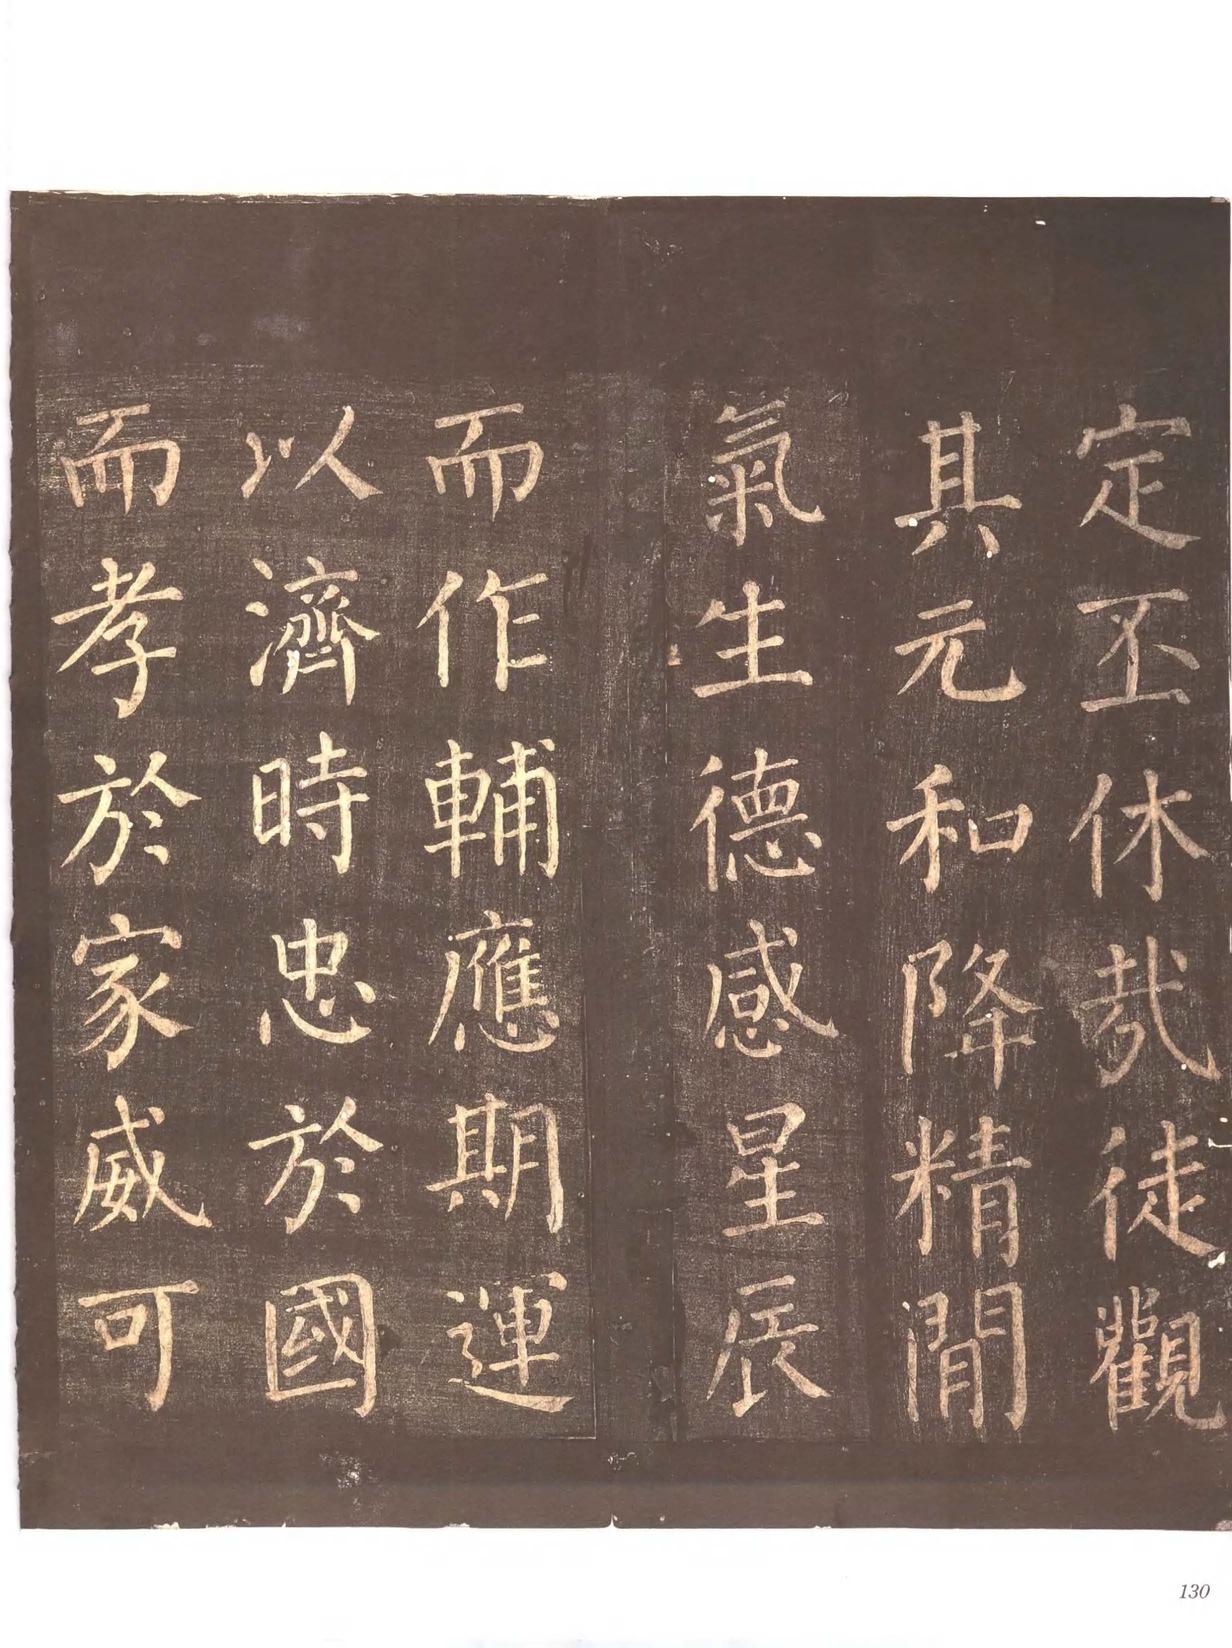 定丕休哉徒觀
其元和降精間
氣生德感星辰
而作輔應期運
以濟時忠於國
而孝於家威可
130